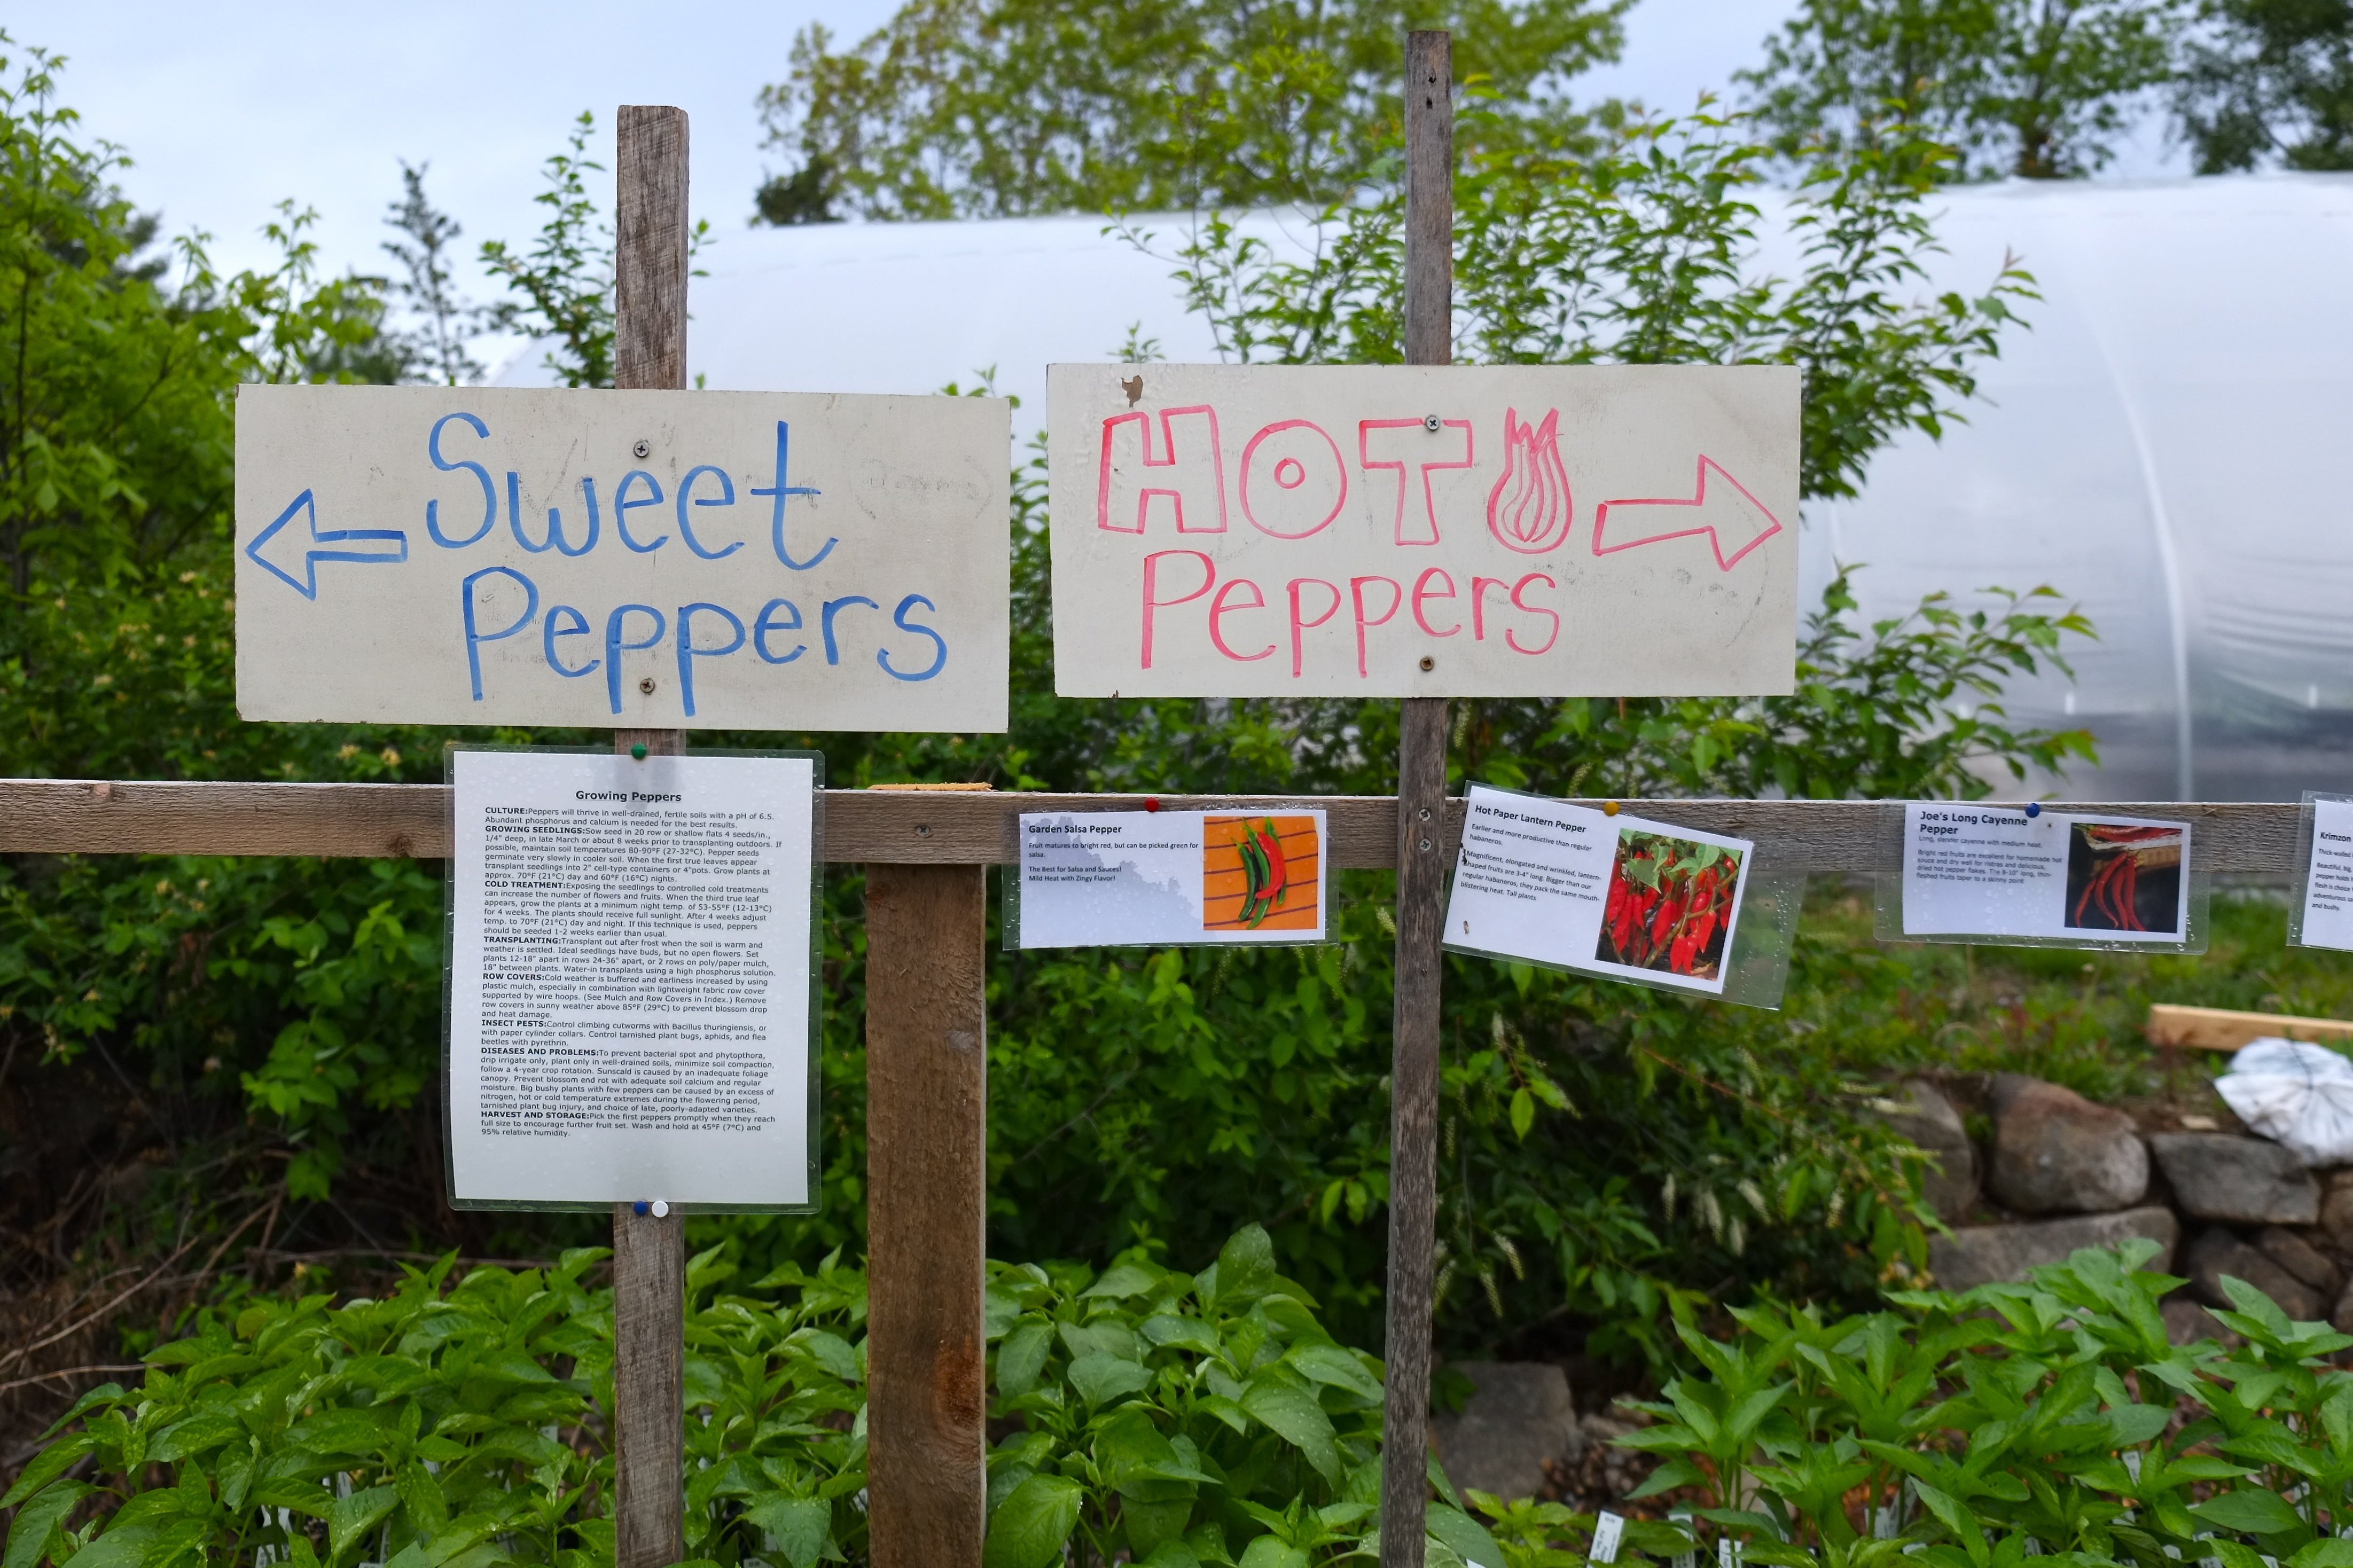 Sweet
Peppers
HOT
Peppers
Growing Peppers
CULTURE:Peppers will thrive in well-drained, fertile soils with a pH of 6.5.
Abundant phosphorus and calcium is needed for the best results.
GROWING SEEDLINGS:Sow seed in 20 row or shallow flats 4 seeds/in.,
1/4" deep, in late March or about 8 weeks prior to transplanting outdoors. If
possible, maintain soil temperatures 80-90°F (27-32°C). Pepper seeds
germinate very slowly in cooler soil. When the first true leaves appear
transplant seedlings into 2" cell-type containers or 4"pots. Grow plants at
approx. 70°F (21°C) day and 60°F (16°C) nights.
COLD TREATMENT:Exposing the seedlings to controlled cold treatments
can increase the number of flowers and fruits. When the third true leaf
appears, grow the plants at a minimum night temp. of 53-55°F (12-13°C)
for 4 weeks. The plants should receive full sunlight. After 4 weeks adjust
temp. to 70°F (21°C) day and night. If this technique is used, peppers
should be seeded 1-2 weeks earlier than usual.
TRANSPLANTING:Transplant out after frost when the soil is warm and
weather is settled. Ideal seedlings have buds, but no open flowers. Set
plants 12-18" apart in rows 24-36" apart, or 2 rows on poly/paper mulch,
18" between plants. Water-in transplants using a high phosphorus solution.
ROW COVERS:Cold weather is buffered and earliness increased by using
plastic mulch, especially in combination with lightweight fabric row cover
supported by wire hoops. (See Mulch and Row Covers in Index.) Remove
row covers in sunny weather above 85°F (29°C) to prevent blossom drop
and heat damage.
INSECT PESTS:Control climbing cutworms with Bacillus thuringiensis, or
with paper cylinder collars. Control tarnished plant bugs, aphids, and flea
beetles with pyrethrin.
DISEASES AND PROBLEMS:To prevent bacterial spot and phytopthora,
drip irrigate only, plant only in well-drained soils, minimize soil compaction,
follow a 4-year crop rotation. Sunscald is caused by an inadequate foliage
canopy. Prevent blossom end rot with adequate soil calcium and regular
moisture. Big bushy plants with few peppers can be caused by an excess of
nitrogen, hot or cold temperature extremes during the flowering period,
tarnished plant bug injury, and choice of late, poorly-adapted varieties.
HARVEST AND STORAGE:Pick the first peppers promptly when they reach
full size to encourage further fruit set. Wash and hold at 45°F (7°C) and
95% relative humidity.
Garden Salsa Pepper
Fruit matures to bright red, but can be picked green for
salsa.
The Best for Salsa and Sauces!
Mild Heat with Zingy Flavor!
Hot Paper Lantern Pepper
Earlier and more productive than regular
habaneros.
Magnificent, elongated and wrinkled, lantern-
shaped fruits are 3-4" long. Bigger than our
regular habaneros, they pack the same mouth-
blistering heat. Tall plants
Joe's Long Cayenne
Pepper
Long, slender cayenne with medium heat.
Bright red fruits are excellent for homemade hot
sauce and dry well for ristras and delicious,
dried hot pepper flakes. The 8-10" long, thin-
fleshed fruits taper to a skinny point.
Krimzon
Thick-walled
Beautiful, big
pepper holds
flesh is choice
adventurous sa
and bushy.